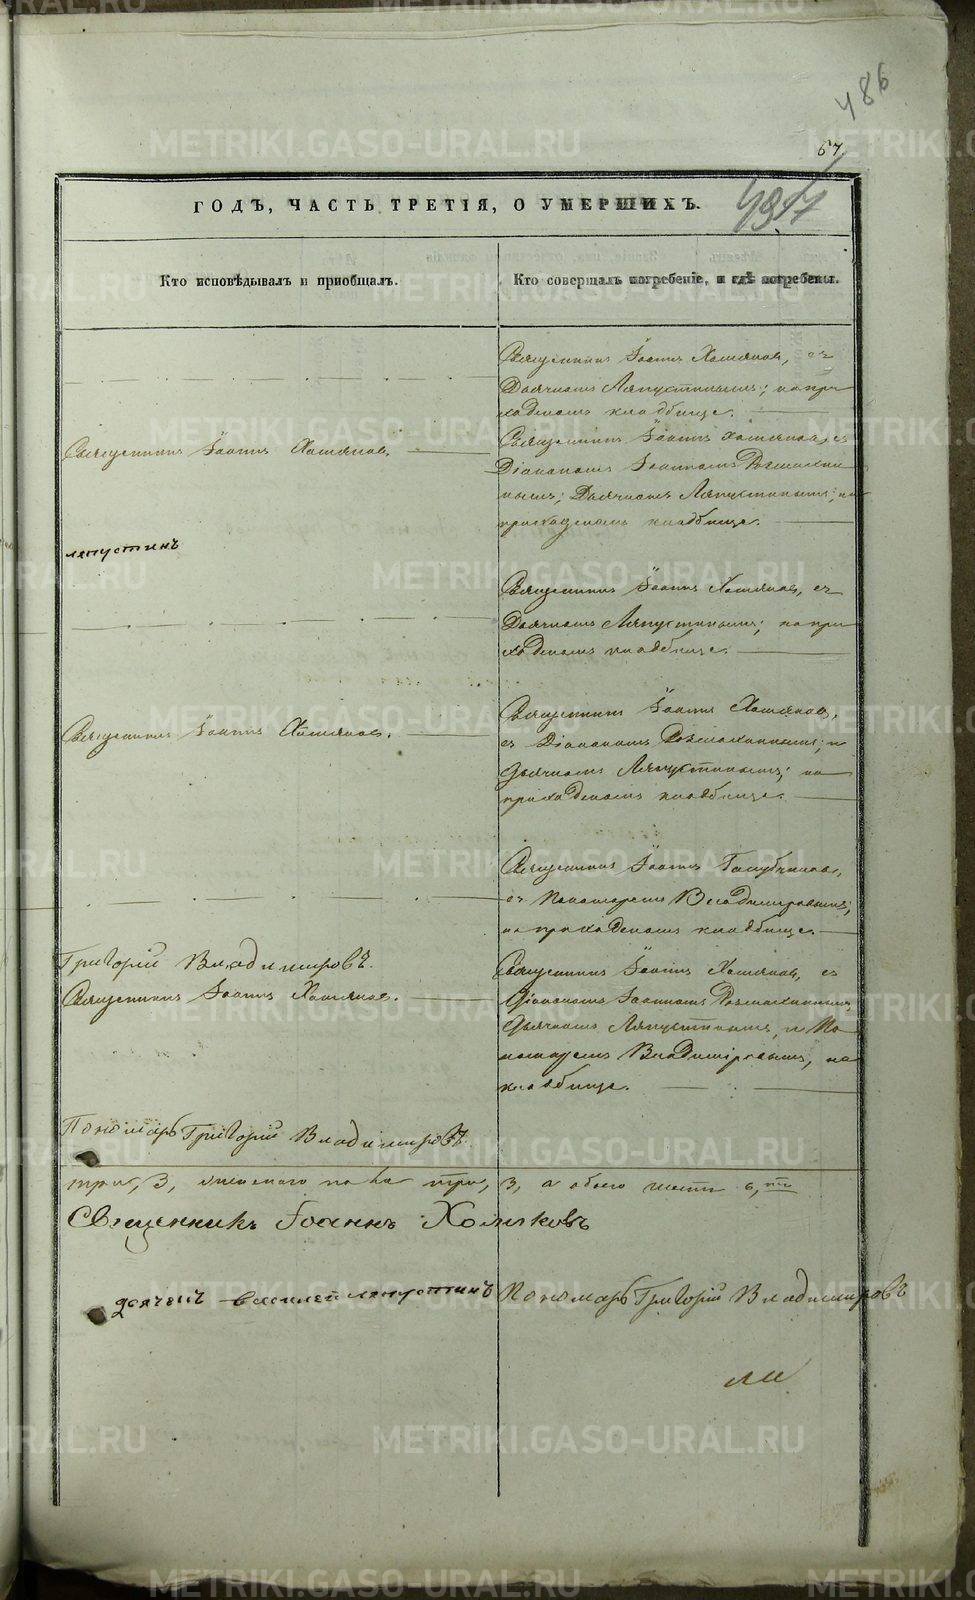 486
67
ГОДЪ, ЧАСТЬ ТРЕТІЯ, О УМЕРШИХЪ.
Кто исповѣдывалъ и пріобщалъ.
Кто совершалъ погребеніе, и гдѣ погребены.
Священникъ Іоаннъ Хомяковъ, съ
Дьячкомъ Ляпустинымъ; на при
ходскомъ кладбище.
Священникъ Іоаннъ Хомяковъ.
Священникъ Іоаннъ Хомяковъ, съ
Діакономъ Іоанномъ
нымъ; Дьячкомъ Ляпустинымъ; на
приходскомъ кладбище.
ляпустинъ
Священникъ Іоаннъ Хомяковъ, съ
Дьячкомъ Ляпустинымъ; на при
ходскомъ кладбище.
Священникъ Іоаннъ Хомяковъ.
Священникъ Іоаннъ Хомяковъ,
съ Діакономъ и
Дьячкомъ Ляпустинымъ; на
приходскомъ кладбище.
Священникъ Іоаннъ
съ Пономаремъ Владимировымъ;
на приходскомъ кладбище.
Григорій Владимировъ.
Священникъ Іоаннъ Хомяковъ.
Священникъ Іоаннъ Хомяковъ, съ
Діакономъ Іоанномъ
Дьячкомъ Ляпустинымъ, и По
номаремъ Владиміровымъ, на
кладбище.
Пономарь Григорій Владимировъ
три, 3, женскаго пола три, 3, а обоего шесть 6,
Священникъ Іоаннъ Хомяковъ
дьячекъ василей ляпустинъ
Пономарь Григорій Владимировъ
METRIKI.GASO-URAL.RU